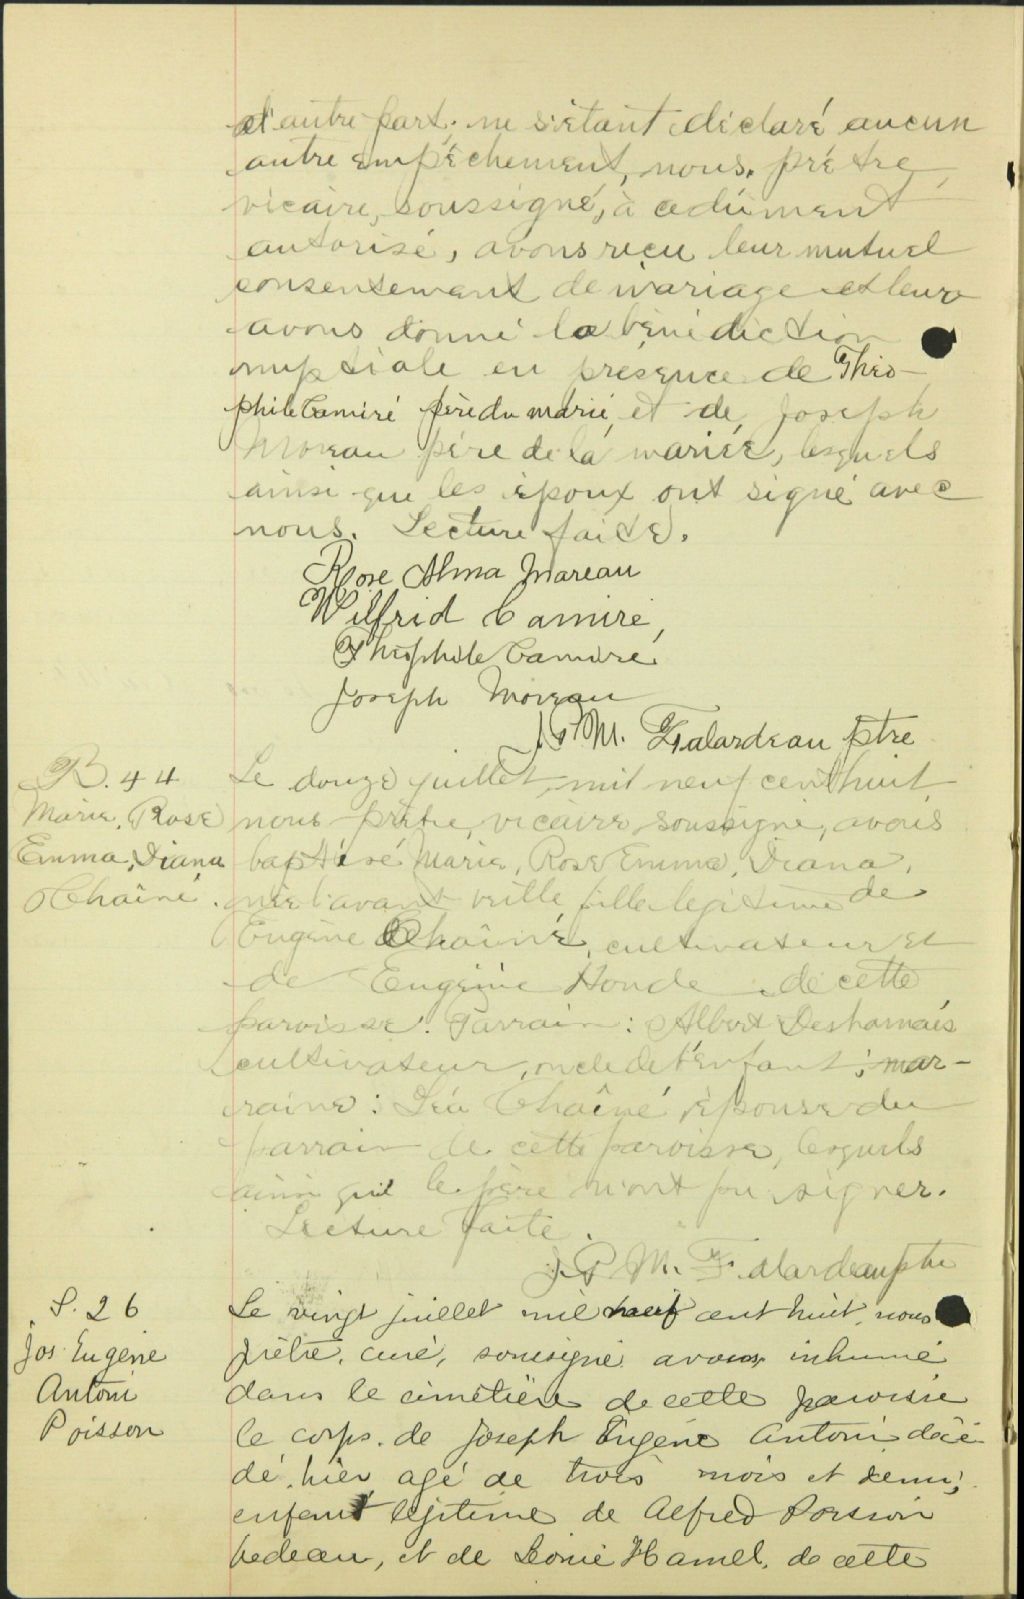 d'autre part; ne s'étant déclaré aucun
autre empêchement, nous, prêtre,
vicaire, soussigné, à ce dûment
autorisé, avons reçu leur mutuel
consentement de mariage et leur
avons donné la bénédiction
nuptiale en présence de Théo-
phile Camiré père du marié, et de Joseph
Moreau père de la mariée, lesquels
ainsi que les époux ont signé avec
nous. Lecture faite.
Rose Alma Moreau
Wilfrid Camiré,
Théophile Camiré
Joseph Moreau
J. P. M. Falardeau ptre
B. 44
Marie, Rose
Emma, Diana
Chaîné.
Le douze juillet, mil neuf cent huit
nous prêtre, vicaire, soussigné, avons
baptisé Marie, Rose Emma, Diana,
née l'avant veille, fille légitime de
Eugène Chaîné, cultivateur et
de Eugénie Houde de cette
paroisse. Parrain: Albert Desharnais
cultivateur, oncle de l'enfant; mar-
raine: Léa Chaîné, épouse du
parrain de cette paroisse, lesquels
ainsi que le père n'ont pu signer.
Lecture faite.
J. P. M. Falardeau ptre
S. 26
Jos Eugène
Antoni
Poisson
Le vingt juillet mil neuf cent huit, nous
prêtre, curé, soussigné avons inhumé
dans le cimetière de cette paroisse
le corps de Joseph Eugène Antoni décé-
dé hier agé de trois mois et demi,
enfant légitime de Alfred Poisson
bedeau, et de Léonie Hamel, de cette